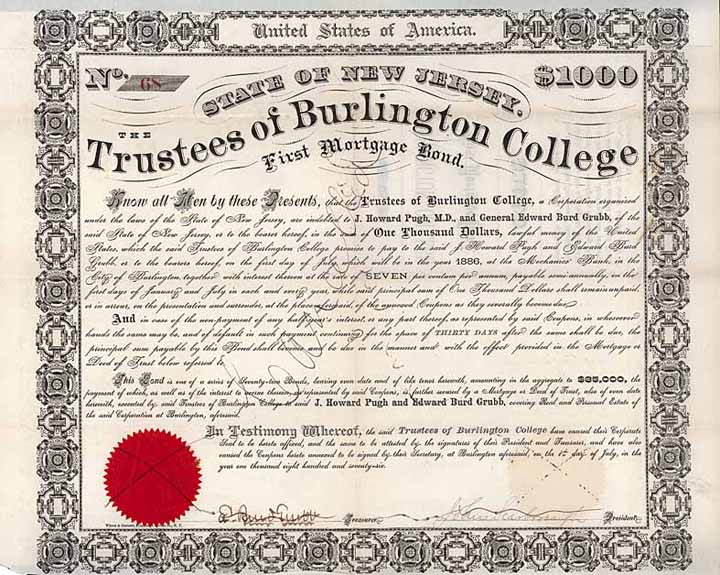 United States of America.
No. 68 $1000
STATE OF NEW JERSEY.
THE
Trustees of Burlington College
First Mortgage Bond.
Know all Men by these Presents, that the Trustees of Burlington College, a Corporation organized
under the laws of the State of New Jersey, are indebted to J. Howard Pugh, M.D., and General Edward Burd Grubb, of the
said State of New Jersey, or to the bearer hereof, in the sum of One Thousand Dollars, lawful money of the United
States, which the said Trustees of Burlington College promise to pay to the said J. Howard Pugh and Edward Burd
Grubb, or to the bearer hereof, on the first day of July which will be in the year 1886, at the Mechanics' Bank, in the
City of Burlington, together with interest thereon at the rate of SEVEN per centum per annum, payable semi-annually, on the
first days of January and July in each and every year, while said principal sum of One Thousand Dollars shall remain unpaid
or in arrear, on the presentation and surrender, at the place aforesaid, of the annexed Coupons as they severally become due.
And in case of the non-payment of any half year's interest, or any part thereof, as represented by said Coupons, in whosesoever
hands the same may be, and of default in such payment continuing for the space of THIRTY DAYS after the same shall be due, the
principal sum payable by this Bond shall become and be due in the manner and with the effect provided in the Mortgage or
Deed of Trust below referred to.
This Bond is one of a series of Seventy-two Bonds, bearing even date and of like tenor herewith, amounting in the aggregate to $35,000, the
payment of which, as well as of the interest to accrue thereon, as represented by said Coupons, is further secured by a Mortgage or Deed of Trust, also of even date
herewith, executed by said Trustees of Burlington College to said J. Howard Pugh and Edward Burd Grubb, covering Real and Personal Estate of
the said Corporation at Burlington, aforesaid.
In Testimony Whereof, the said Trustees of Burlington College have caused their Corporate
Seal to be hereto affixed, and the same to be attested by the signatures of their President and Treasurer, and have also
caused the Coupons hereto annexed to be signed by their Secretary, at Burlington aforesaid, on the 1st day of July, in the
year one thousand eight hundred and seventy-six.
E. Burd Grubb Treasurer. President.